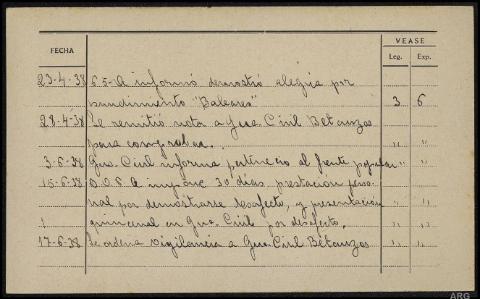 VEASE
FECHA Leg. Exp.
23-4-38 G.S-A informó demostró alegria por
hundimiento "Baleares" 3 6
28-4-38 Se remitió nota a Gua. Civil Betanzos
para comprobar. . " "
3-6-38 Gua. Civil informa perteneció al frente popular " "
15-6-38 O.O.P. A impone 30 días prestación perso-
nal por demostrarse desafecto, y presentación " "
quincenal en Gua. Civil por desafecto. " "
17-6-38 Se ordena vigilancia a Gua Civil Betanzos " "
ARG